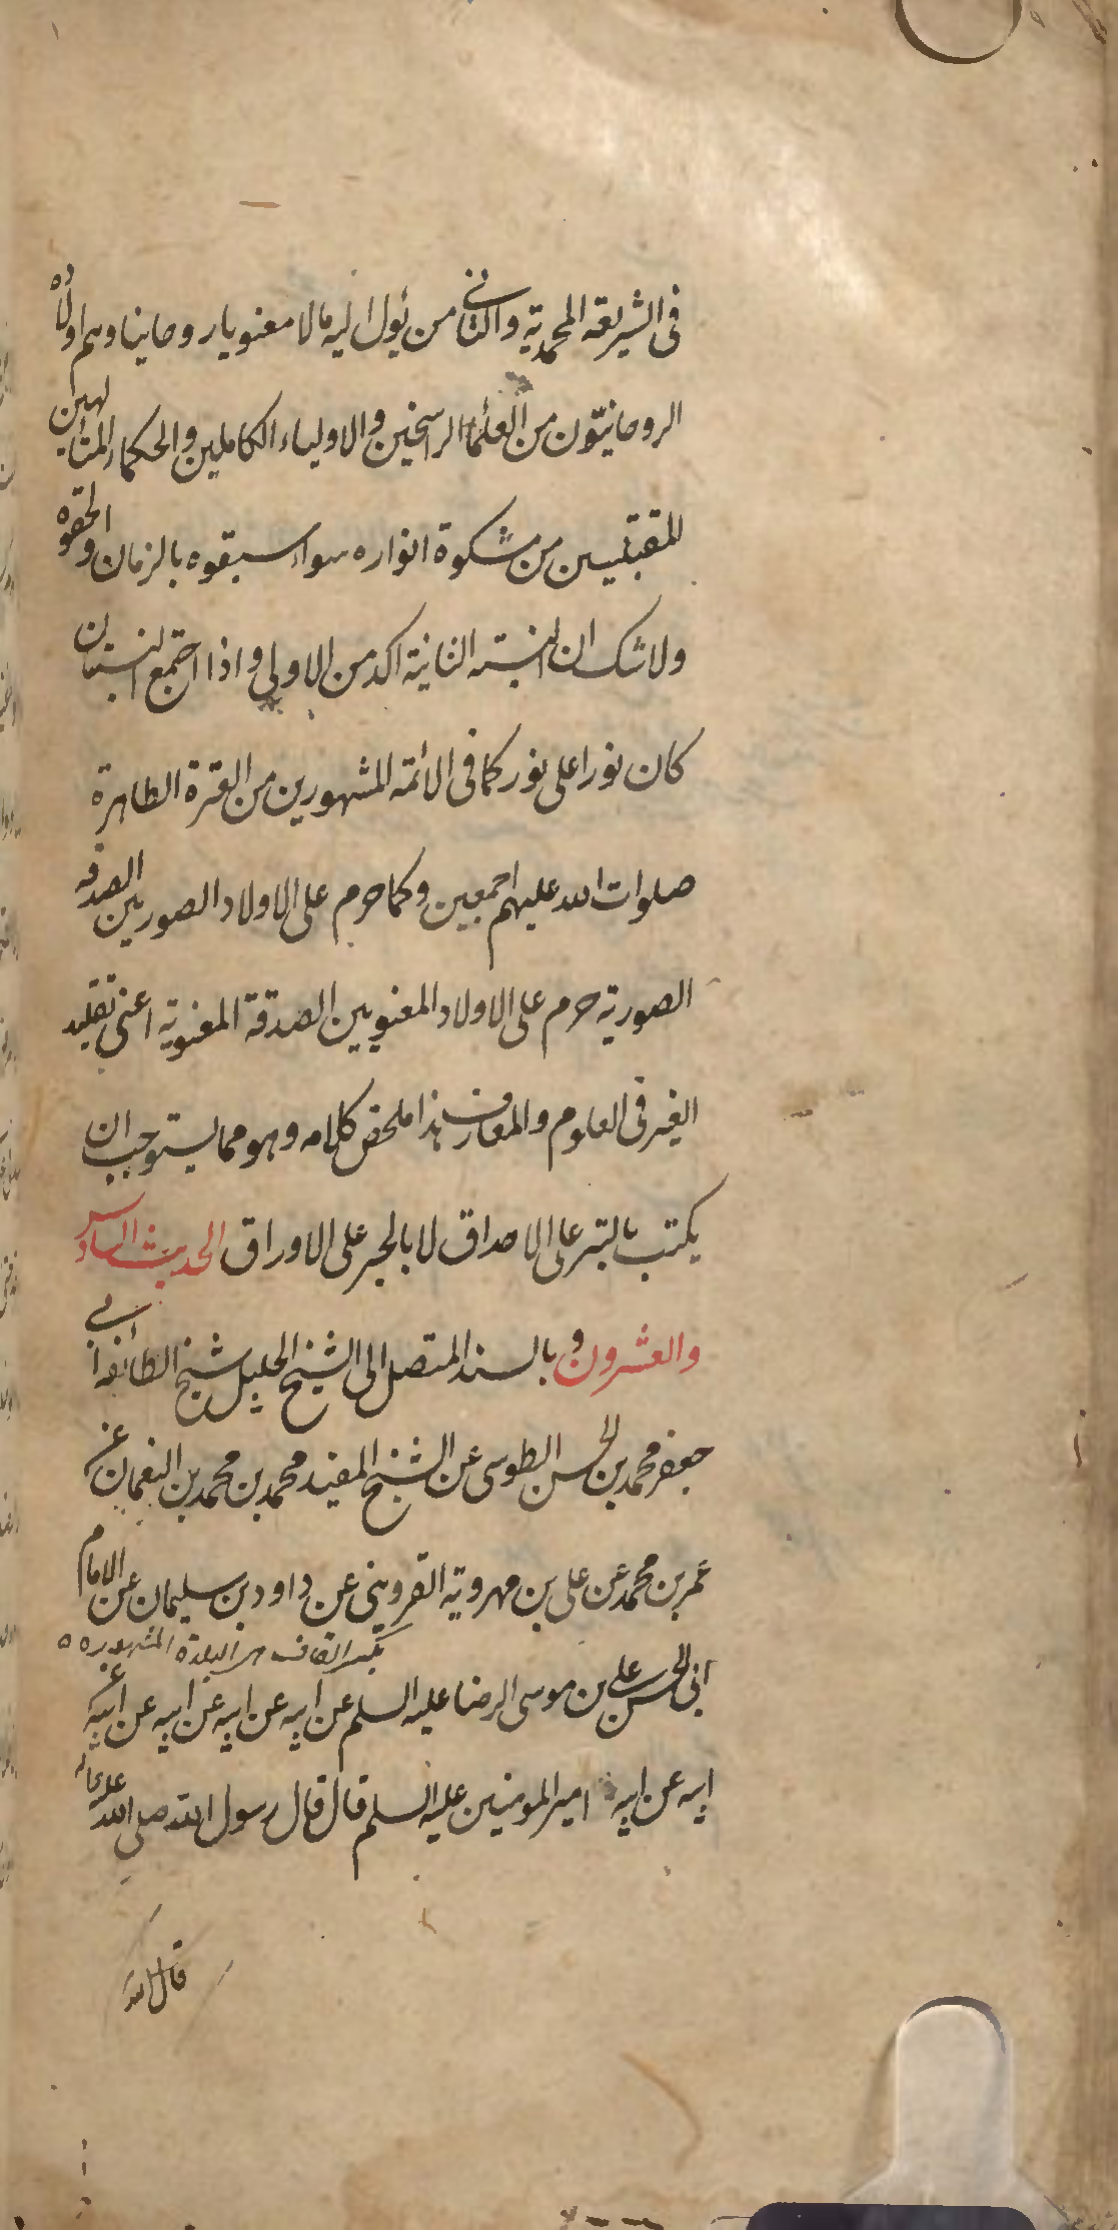 في الشريعة المحمدية والثاني من يؤل اليه مالا معنويا روحانيا وهم اولاده
الروحانيّون من العلماء الراسخين والاولياء الكاملين والحكماء المتألهين
المقتبسين من مشكوة انواره سواء سبقوه بالزمان او لحقوه
ولا شك ان النسبة الثانية اكد من الاولى واذا اجتمع النسبتان
كان نورا على نور كما في الائمة المشهورين من العترة الطاهرة
صلوات الله عليهم اجمعين وكما حرم على الاولاد الصوريين الصدقة
الصورية حرم على الاولاد المعنويين الصدقة المعنوية اعني تقليد
الغير في العلوم والمعارف هذا ملخص كلامه وهو مما يستوجب ان
يكتب بالتبر على الاحداق لا بالحبر على الاوراق الحديث السادس
والعشرون وبالسند المتصل الى الشيخ الجليل شيخ الطائفة ابي
جعفر محمد بن الحسن الطوسي عن الشيخ المفيد محمد بن محمد بن النعمان عن
عمر بن محمد عن علي بن مهروية القزويني عن داود بن سليمان عن الامام
البلدة المشهورة
ابي الحسن علي بن موسى الرضا عليه السلم عن ابيه عن ابيه عن ابيه عن ابيه عن
ابيه عن ابيه امير المومنين عليه السلم قال قال رسول الله صلى الله عليه واله
قال الله